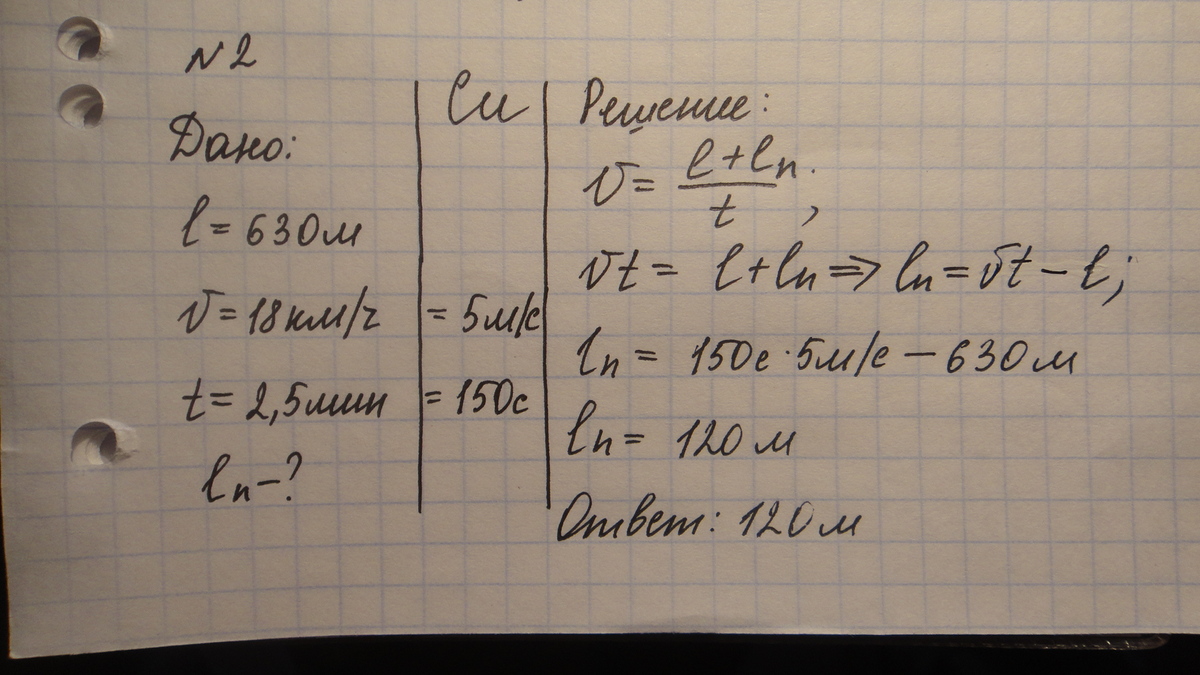 N2
Дано:
l = 630м
v = 18км/ч
t = 2,5мин
lп - ?
Си
= 5м/с
= 150с
Решение:
v = (l + lп) / t;
vt = l + lп => lп = vt - l;
lп = 150с · 5м/с - 630м
lп = 120м
Ответ: 120м